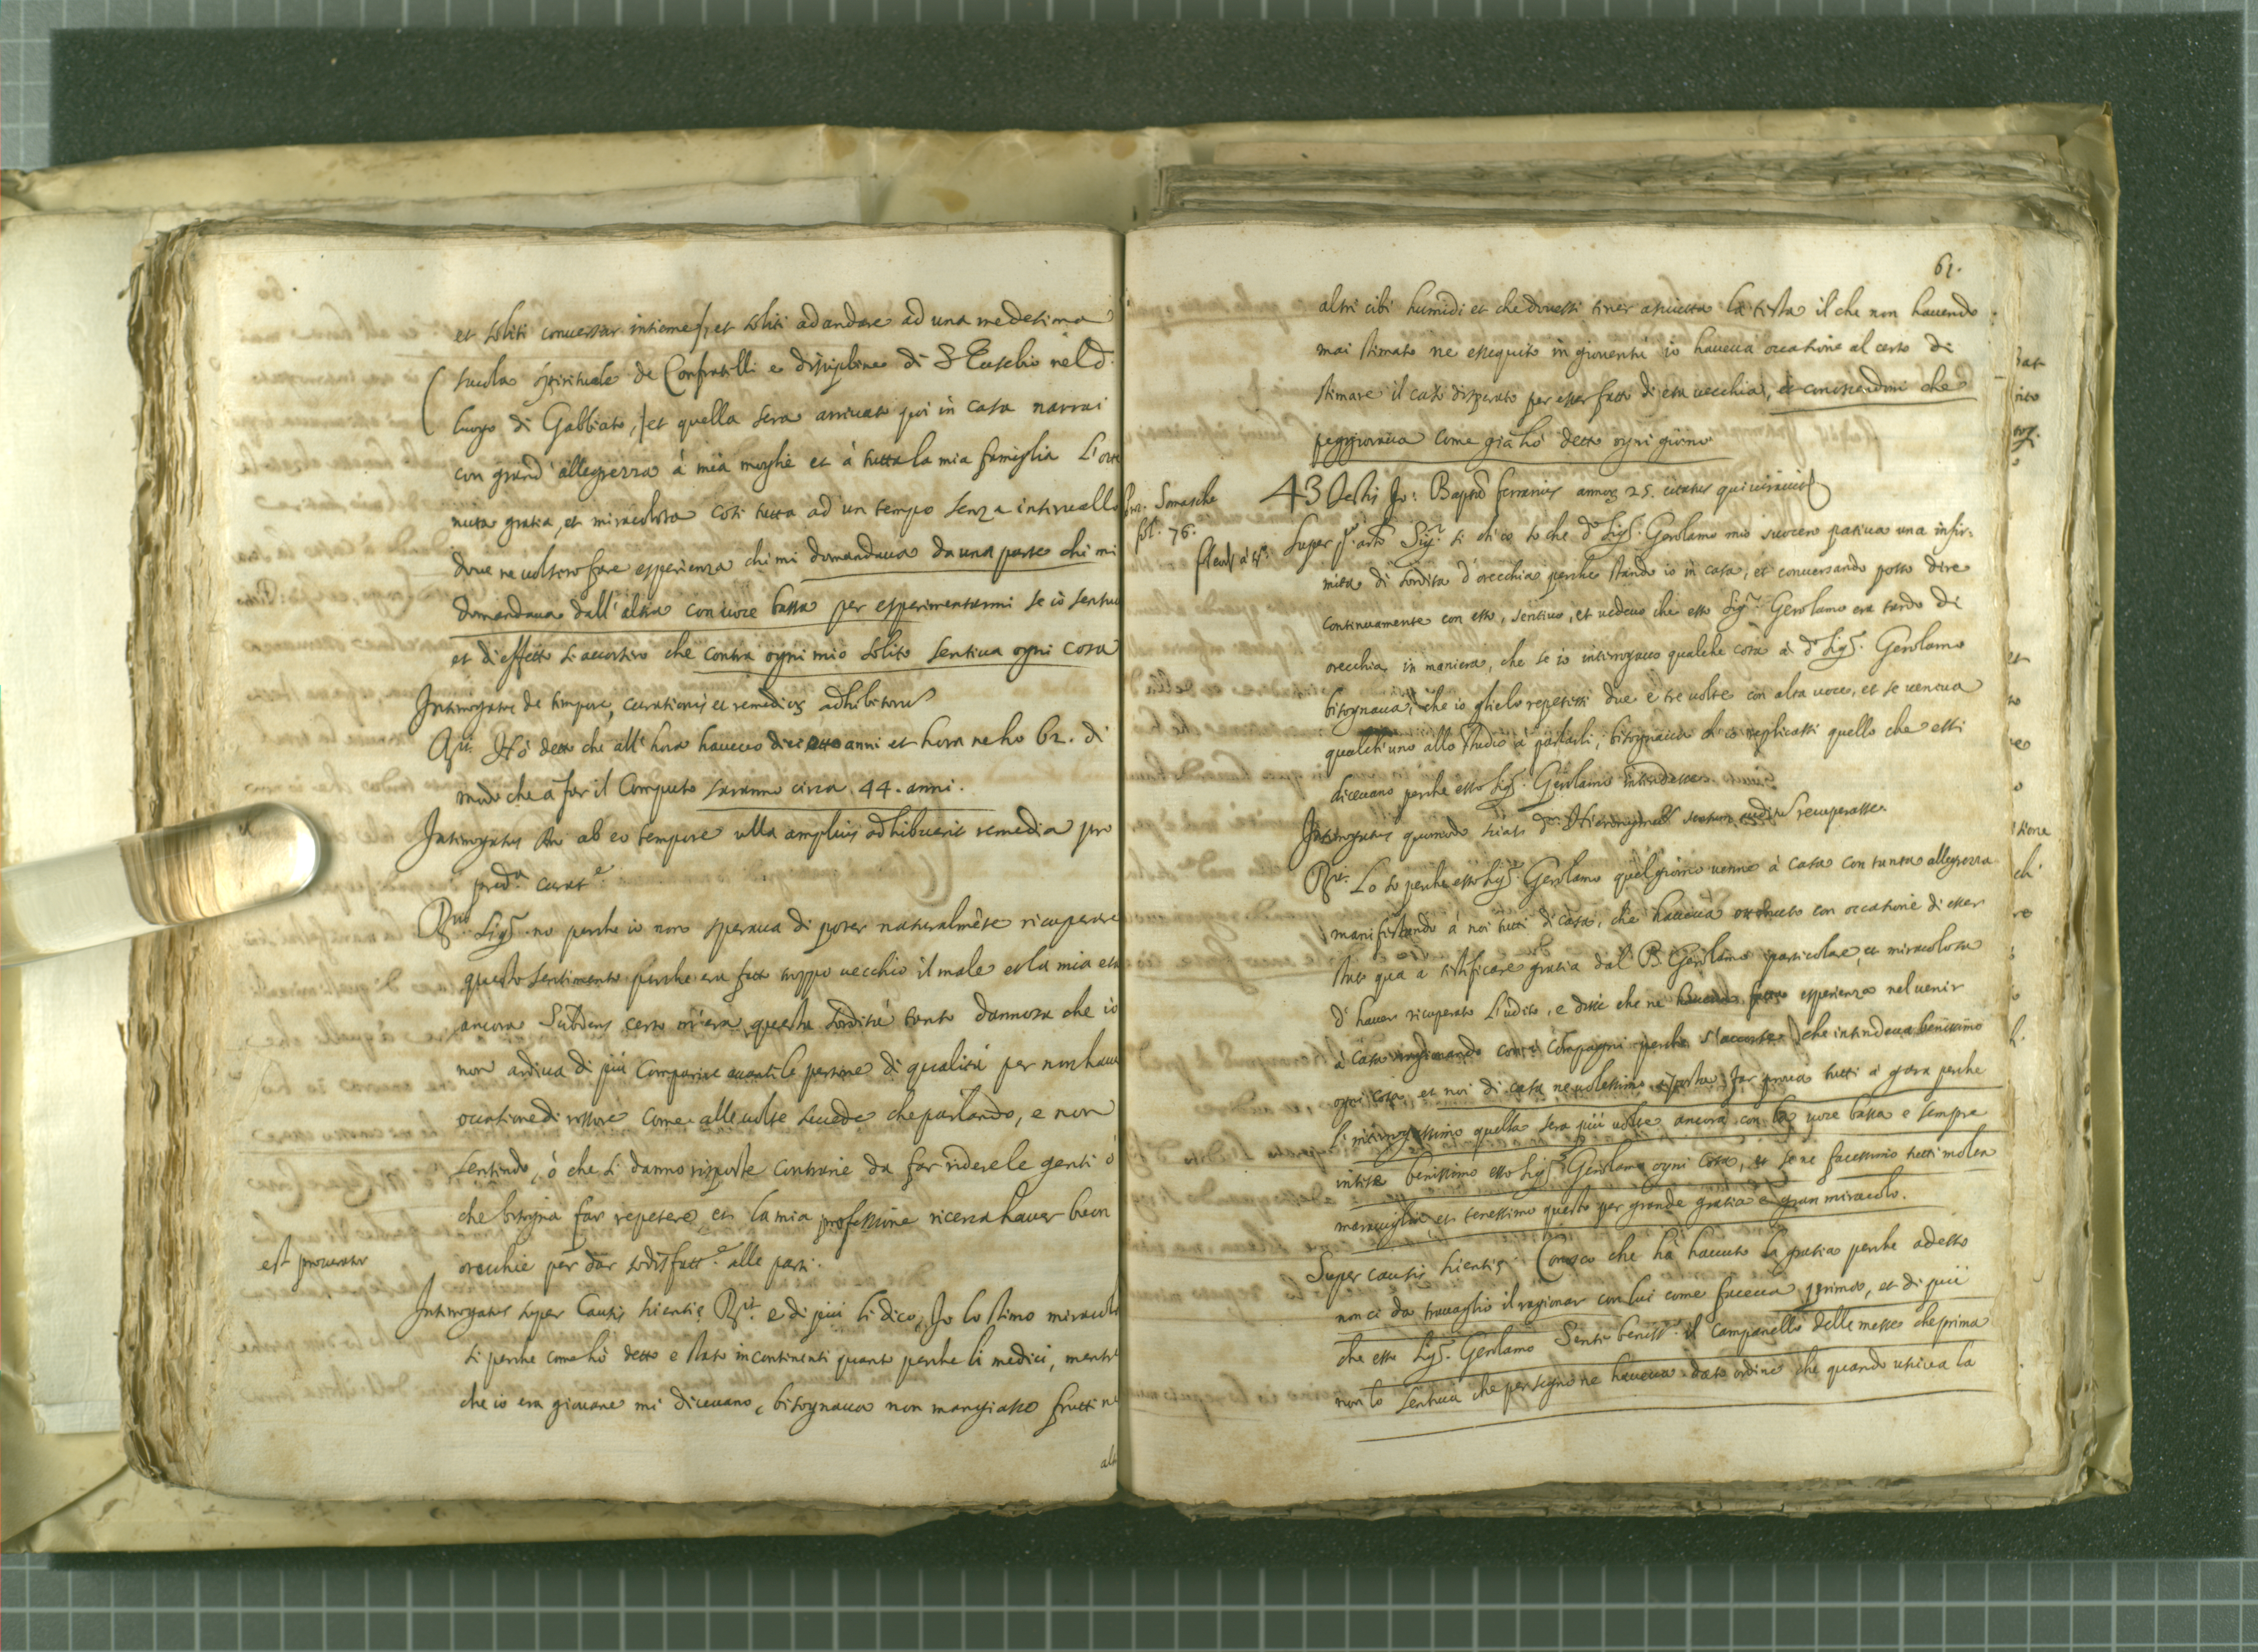 et soliti conversar insieme, et soliti ad andare ad una medesima
scuola spirituale de Confratelli e discipline di S. Eusebio nel d.
luogo di Gabbiato, et quella sera arrivato qui in casa narrai
con grand' allegrezza à mia moglie et à tutta la mia famiglia l'otte
nuta gratia, et miracolosa così tutta ad un tempo senza intervallo
dove ne volsero fare esperienza chi mi domandava da una parte chi mi
domandava dall' altra con voce bassa per esperimentarmi se io sentivo
et di effetto s'accorsero che contra ogni mio solito sentiva ogni cosa
Interrogatus de tempore, curationis et remediis adhibitis
Rit. Hò detto che all' hora havevo dieciotto anni et hora ne ho 62. di
modo che à far il computo saranno circa 44. anni.
Interrogatus An ab eo tempore ulla amplius adhibuerit remedia pro
pred.a curat.e
Rit. Sig.r no perche io non sperava di poter naturalmēte ricuperare
questo sentimento perche era fatto troppo vecchio il male et la mia età
ancora Subdens certo m'era questa sordità tanto dannosa che io
non ardiva di più comparire avanti le persone di qualità per non haver
occatione di rossore come alle volte succede che parlando, e non
sentendo, ò che si danno risposte contrarie da far ridere le genti ò
che bisogna far repetere, et la mia professione ricerca haver buon
est procurator
orecchie per dar sodisfatt.e alle parti.
Interrogatus super Causis scientię Rit. e di più li dico, Io lo stimo miracolo
si perche come hò detto è stato in continenti quanto perche li medici, mentre
che io era giovane mi dicevano, bisognava non mangiasse frutti ne
alt
61.
altri cibi humidi et che dovessi tener asciutta la testa il che non havendo
mai stimato ne essequito in gioventù io haveva occatione al certo di
stimare il caso disperato per esser fatto di età vecchia, et
peggiorava come già hò detto ogni giorno
Somasche
fol. 76.
43 Testis Jo: Bapta Ferrarius annor. 25. citatus qui iuravit
Super p.o arto Sig.r si ch'io so che d.o Sig.r Gerolamo mio suocero pativa una infir-
mità di sordità d'orecchia perche stando io in casa, et conversando posso dire
continuamente con esso, sentivo, et vedevo che esso Sig.r Gerolamo era tardo di
orecchia in maniera, che se io interrogavo qualche cosa à d.o Sig.r Gerolamo
bisognava, che io glielo repetessi due e tre volte con alta voce, et se veneva
qualch'uno allo studio à parlarli, bisognava ch'io replicassi quello che essi
dicevano perche esso Sig.r Gerolamo intendesse.
Interrogatus quomodo sciat d.m Hieronymum auditum recuperasse.
Rit. Lo so perche esso Sig.r Gerolamo quel giorno venne à casa con tanta allegrezza
manifestando à noi tutti di casa, che haveva ottenuto con occatione di esser
stato qua à testificare gratia dal B. Gerolamo particolare, et miracolosa
d'haver ricuperato l'udito, e disse che ne haveva fatto esperienza nel venir
à casa ragionando con i compagni perche s'accorse che intendeva benissimo
ogni cosa, et noi di casa ne volessimo à posta far prova tutti à gara perche
l'interrogassimo quella sera più volte ancora con la voce bassa e sempre
intese benissimo esso Sig.r Gerolamo ogni cosa, et se ne facessimo tutti molta
maraviglia, et tenessimo questo per grande gratia e gran miracolo.
Super causis scientię. Conosco che hà havuto la gratia perche adesso
non ci da travaglio il ragionar con lui come faceva prima, et di più
che esso Sig.r Gerolamo sente beniss.o il campanello delle messe che prima
non lo sentiva che per segno ne haveva dato ordine che quando usciva la